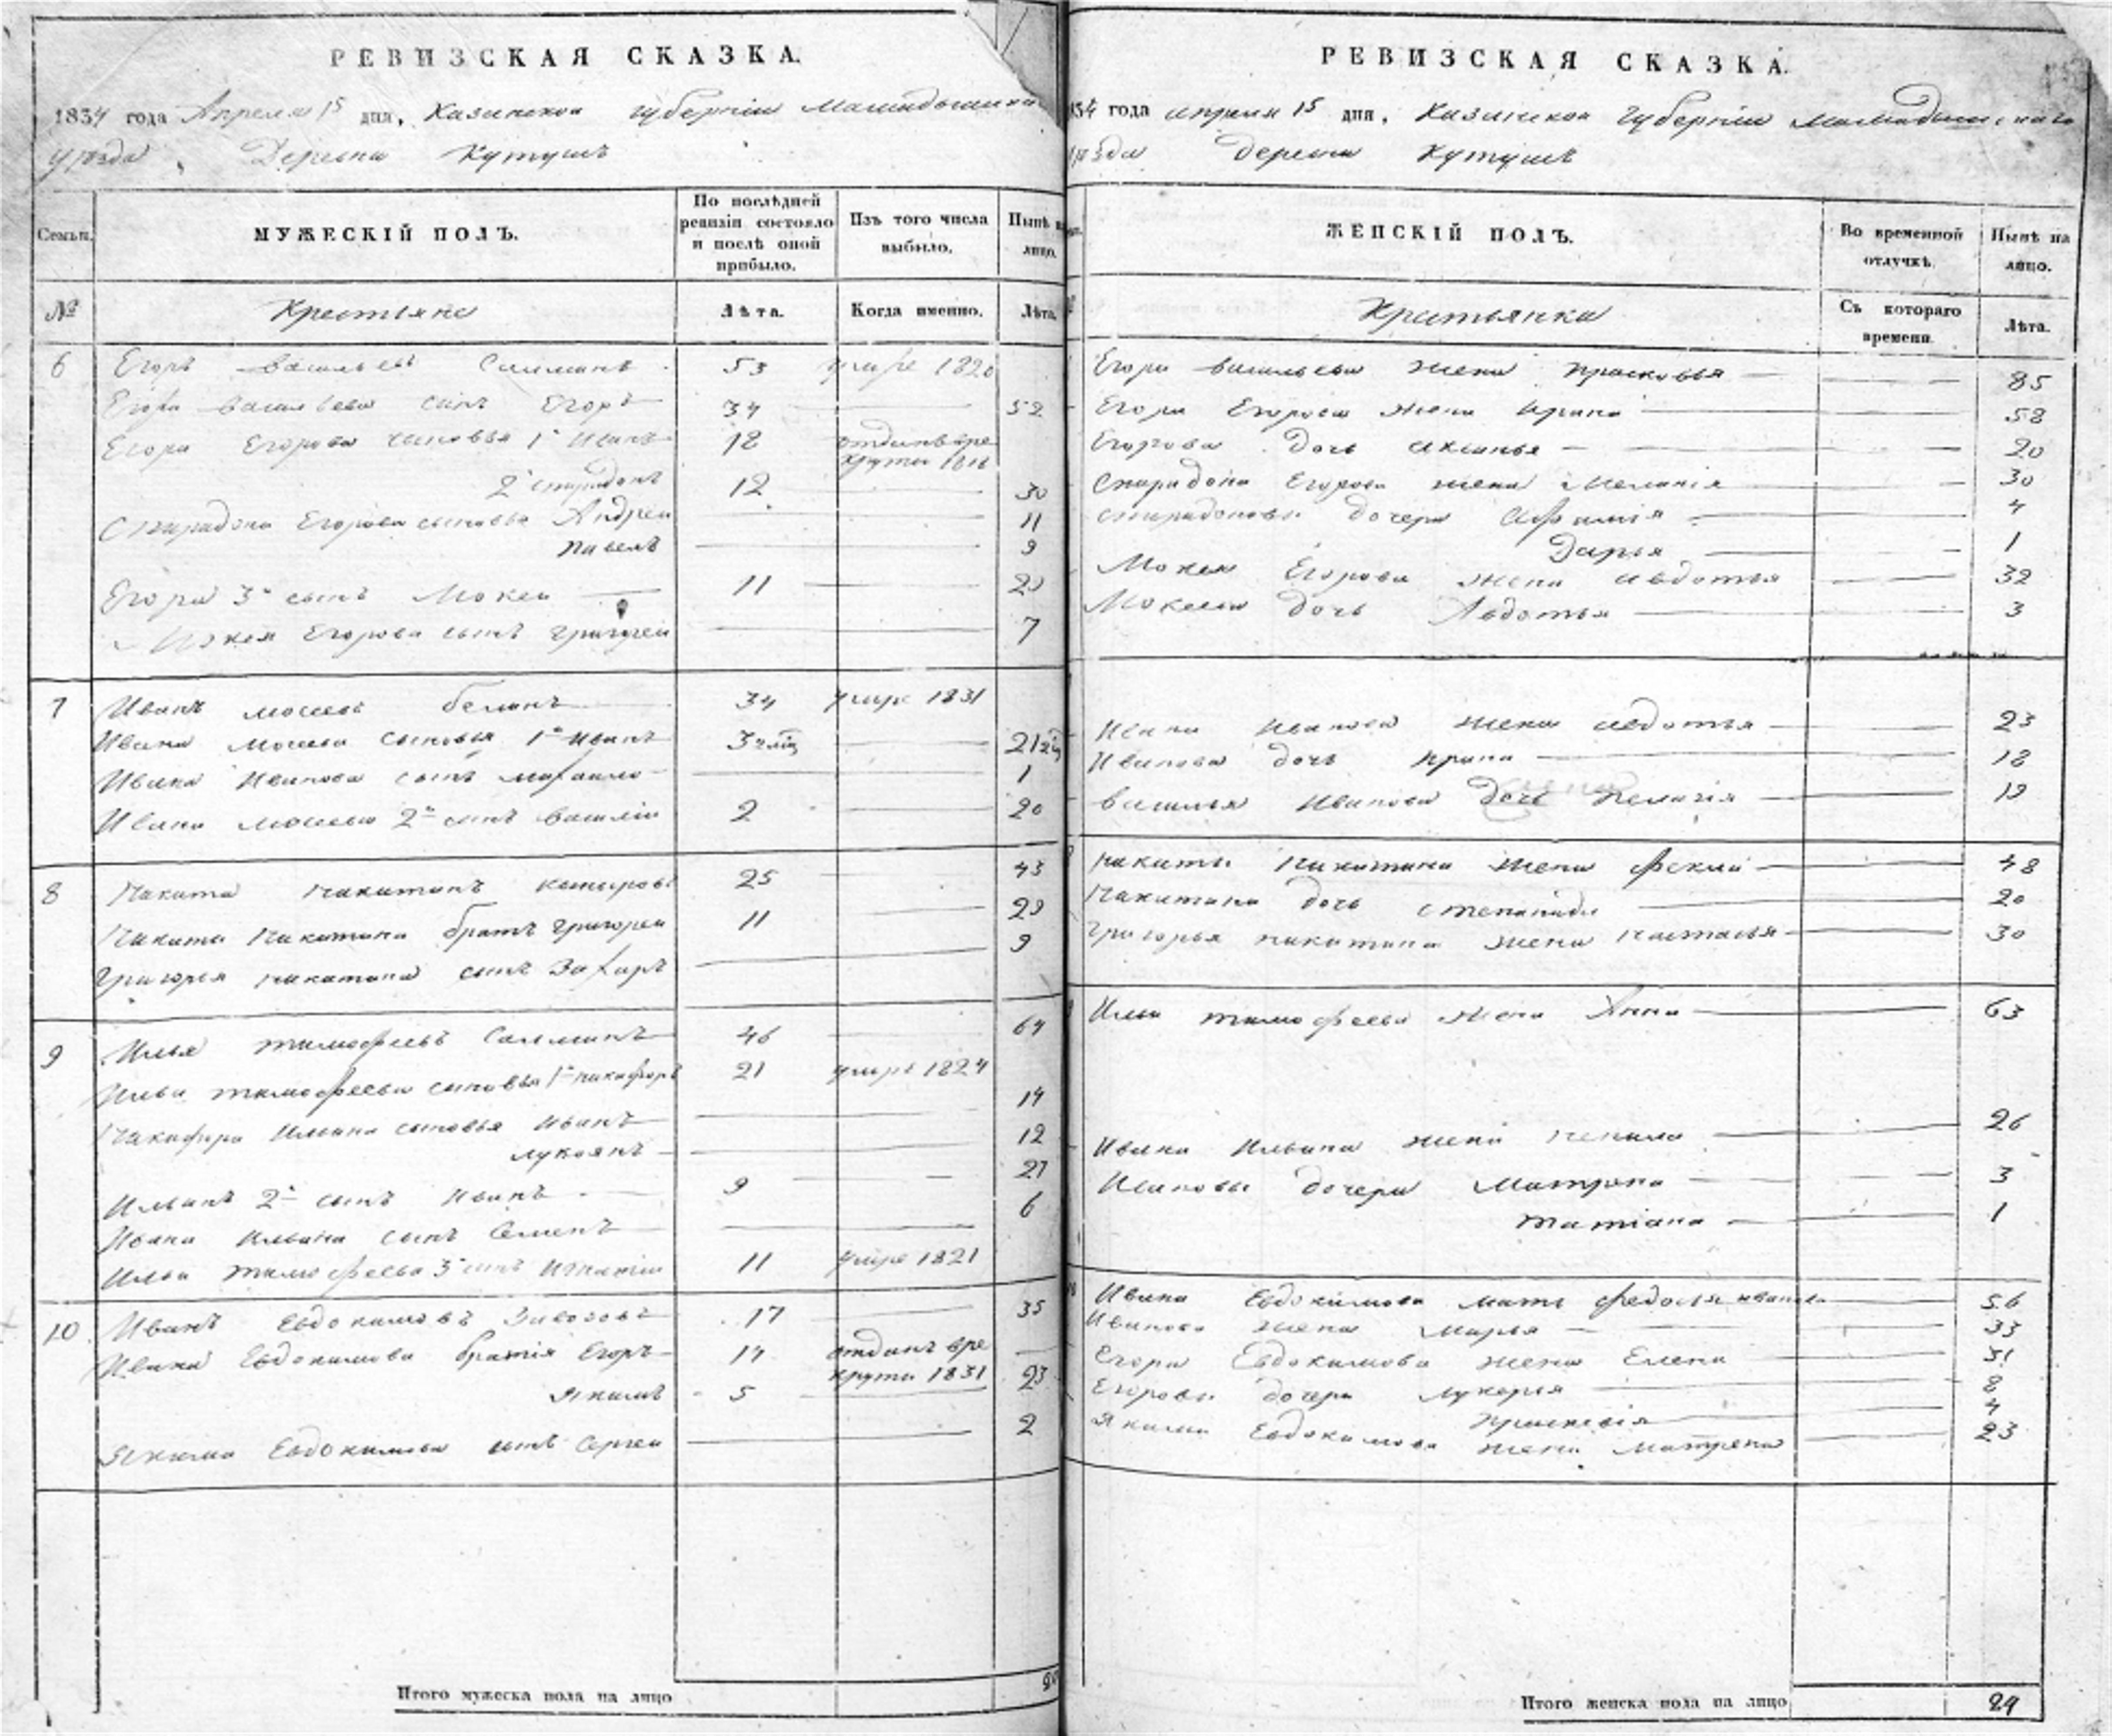 РЕВИЗСКАЯ СКАЗКА.
1834 года Апреля 15 дня, Казанской губерніи
уѣзда, Деревни Кутушъ
Семьи.
МУЖЕСКІЙ ПОЛЪ.
По послѣдней ревизіи состояло и послѣ оной прибыло.
Изъ того числа выбыло.
Нынѣ на лицо.
№
Крестьяне
Лѣта.
Когда именно.
Лѣта.
6 Егоръ Васильевъ 53 умре 1820
Егора Васильева сынъ Егоръ 34 52
Егора Егорова сыновья 1й Иванъ 18 отданъ въ ре
круты 1818
2й Спиридонъ 12 30
Спиридона Егорова сыновья Андрей 11
Павелъ 9
Егора 3й сынъ Мокей 11 29
Мокея Егорова сынъ Григорей 7
7 Иванъ Белинъ 34 умре 1831
Ивана сыновья 1й Иванъ 21
Ивана Иванова сынъ Михайло 1
Ивана 2й сынъ Василій 2 20
8 Никита Никитинъ 25 43
Никиты Никитина братъ Григорей 11 29
Григорья Никитина сынъ Захаръ 9
9 Илья Тимофеевъ 46 64
Ильи Тимофеева сыновья 1й Никифоръ 21 умре 1824
Никифора Ильина сыновья Иванъ 14
Лукоянъ 12
2й сынъ Иванъ 9 27
Ивана Ильина сынъ Семенъ 6
Ильи Тимофеева 3й сынъ Игнатій 11 умре 1821
10 Иванъ Евдокимовъ 17 35
Ивана Евдокимова братія Егоръ 14 отданъ въ ре
круты 1831
Якимъ 5 23
Якима Евдокимова сынъ Сергей 2
Итого мужеска пола на лицо
РЕВИЗСКАЯ СКАЗКА.
года апреля 15 дня, Казанской Губерніи
деревни Кутушъ
ЖЕНСКІЙ ПОЛЪ.
Во временной отлучкѣ.
Нынѣ на лицо.
Крестьянки
Съ котораго времени.
Лѣта.
Егора Васильева жена Прасковья 85
Егора Егорова жена Ирина 58
Егорова дочь Аксинья 20
Спиридона Егорова жена Меланія 30
Спиридоновы дочери 4
Дарья 1
Мокея Егорова жена Авдотья 32
Мокеева дочь Авдотья 3
Ивана Иванова жена Авдотья 23
Иванова дочь Ирина 18
Василья Иванова Пелагія 19
Никиты Никитина жена 48
Никитина дочь Степанида 20
Григорья Никитина жена Настасья 30
Ильи Тимофеева жена Анна 63
Ивана Ильина жена 26
Ивановы дочери Матрона 3
Татіана 1
Ивана Евдокимова мать Федосья Иванова 56
Иванова жена Марья 33
Егора Евдокимова жена Елена 31
Егоровы дочери Лукерья 8
Прасковія 4
Якима Евдокимова жена Матрена 23
Итого женска пола на лицо 24